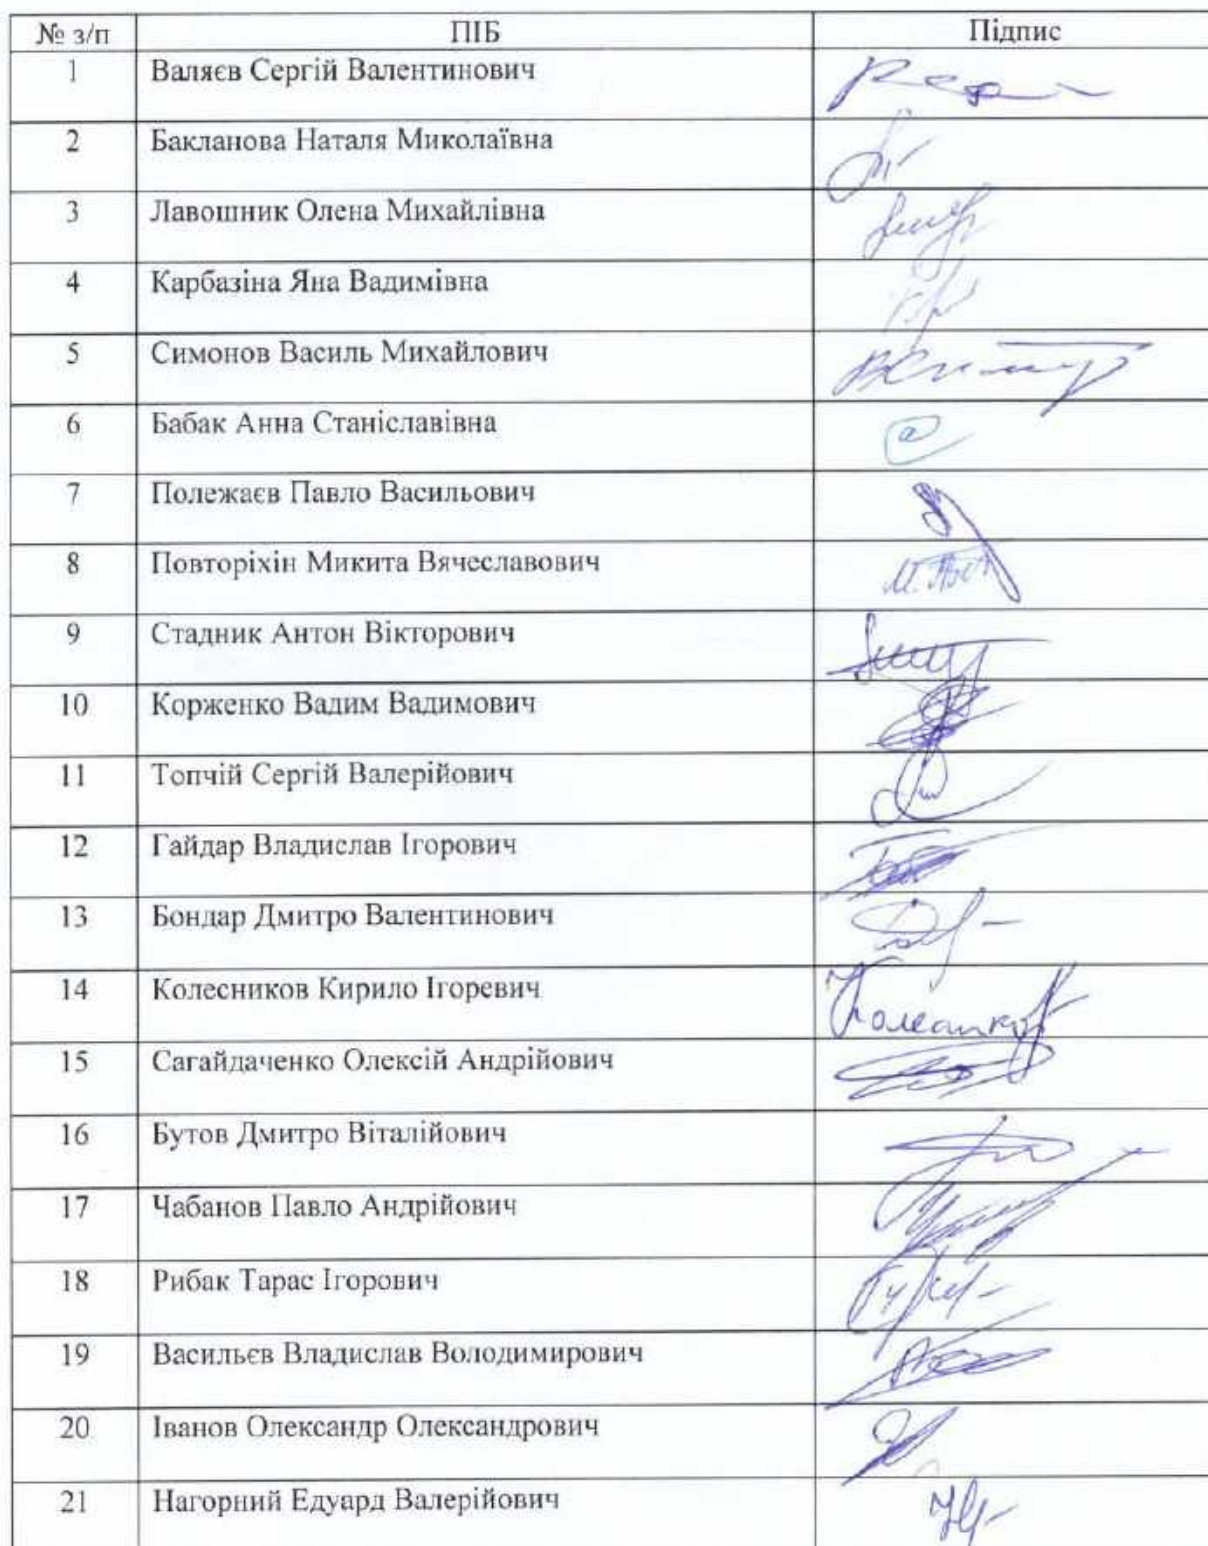 № з/п ПІБ Підпис
1 Валяєв Сергій Валентинович
2 Бакланова Наталя Миколаївна
3 Лавошник Олена Михайлівна
4 Карбазіна Яна Вадимівна
5 Симонов Василь Михайлович
6 Бабак Анна Станіславівна
7 Полежаєв Павло Васильович
8 Повторіхін Микита Вячеславович
9 Стадник Антон Вікторович
10 Корженко Вадим Вадимович
11 Топчій Сергій Валерійович
12 Гайдар Владислав Ігорович
13 Бондар Дмитро Валентинович
14 Колесников Кирило Ігоревич
15 Сагайдаченко Олексій Андрійович
16 Бутов Дмитро Віталійович
17 Чабанов Павло Андрійович
18 Рибак Тарас Ігорович
19 Васильєв Владислав Володимирович
20 Іванов Олександр Олександрович
21 Нагорний Едуард Валерійович